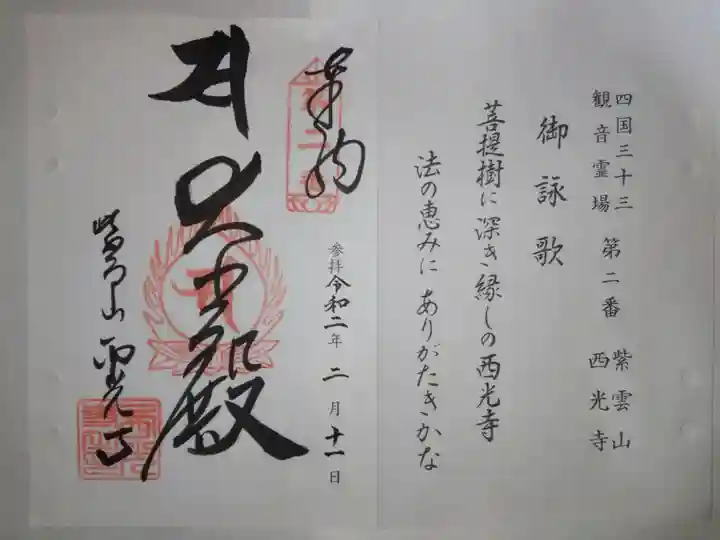 四国三十三
観音霊場 第二番 紫雲山
西光寺
御詠歌
菩提樹に深き縁しの西光寺
法の恵みに ありがたきかな
奉納
参拝令和二年 二月十一日
殿
紫雲山 西光寺